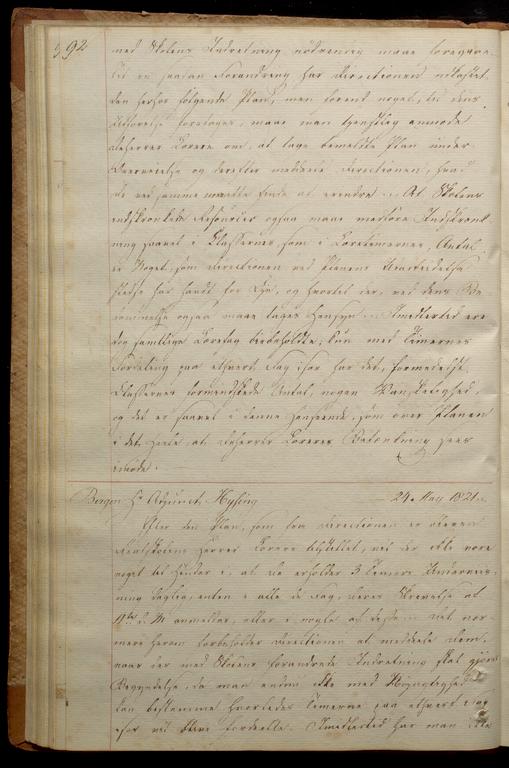 392
med Skolens Indretning nødvendig maae foregaae.
Til en saadan Forandring har Directionen udkastet
den herfor følgende Plan, men forend noget, til dens
Udførelse foretages, maae man tjenstlig anmode
de Herrer Lærere om, at tage bemeldte Plan under
Overveielse og derefter meddele Directionen, hvad
de ved samme maatte finde at erindre At Skolens
indskrænkede Resourcer ogsaa maae medføre Indskrænk
ning saavel i Classernes, som i Læretimernes, Antal
er Noget, som Directionen ved Planens Udarbeidelse
stedse har havt for Øie, og hvortil der, ved dens
ogsaa maae tages Hensyn. Imedlertid ere
dog samtlige Læretag bibeholdte, kun med Timernes
Fordeling paa ethvert Fag især har det, formedelst
Classernes formindskede Antal, nogen Vanskelighed,
og det er saavel i denne Henseende, som over Planen
i det Hele, at de Herrer Læreres Betænkning sees
imøde.
Bergen Hr Adjunct Hysing 24. May 1821.
Efter den Plan, som fra Directionen er
Realskolens Herrer Lærere tilstillet, vil der ikke være
noget til Hinder i, at De erholder 3 Timers Underviis-
ning daglig, enten i alle de Fag, deres Skrivelse af
d. M anmelder, eller i nogle af disse. Det nær-
mere herom forbeholder Directionen at meddele Dem,
naar der med Skolens forandrede Indretning skal gjøres
Begyndelse, da man endnu ikke med Nøiagtighed
kan bestemme hvorledes Timerne paa ethvert Fag
især vil blive fordeelte. Imedlertid har man ikke